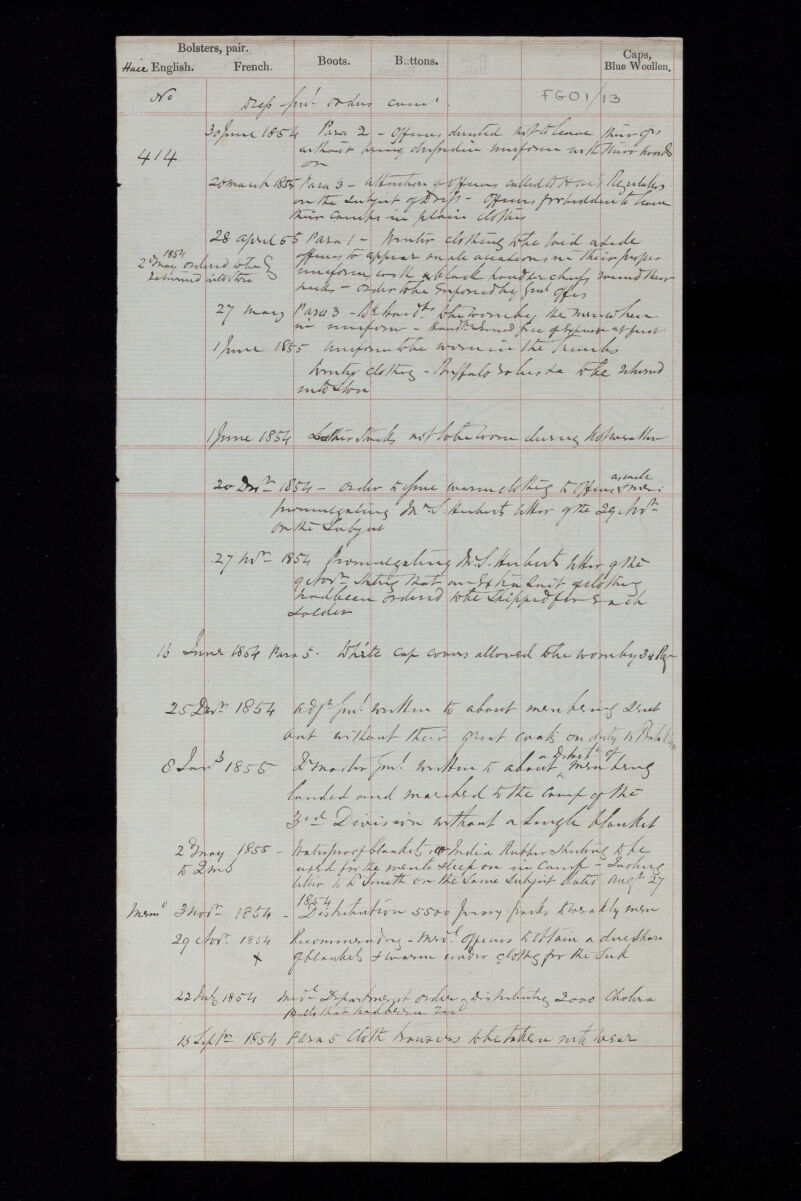 Bolsters, pair.
Hair English. French. Boots. Buttons. Caps, Blue Woollen.
No
FG01/13
Dress - Genl orders contd.
30 June 1854 Para 2 - Officers directed not to leave their qrs
414. without being dressed in uniform with their swords
on
20 March 1855 Para 3 - attention of officers called to Regulations
on the subject of Dress - Officers forbidden to leave
their camps in plain clothes
28 April 55 Para 1 - Winter clothing to be laid aside
officers to appear on all occasions in their proper
uniform with black handkerchiefs round their
necks - order to be enforced by Genl offrs
1854
2d May ordered to be
returned into store
27 May Para 3 - to be worn by the men when
in uniform - issued free of expense at first
1 June 1855 Uniform to be worn in the Trenches
Winter clothing - Buffalo robes &c to be returned
into store
1 June 1854 Leather Stocks not to be worn during hot weather
20 Decr 1854 - order to issue warm clothing to officers & men:
promulgating Mr S. Herberts letter of the 29 Novr
on the subject
27 Novr 1854 promulgating Mr S. Herberts letter of the
9 Novr stating that an Extra Suit of clothing
had been ordered to be shipped for each
soldier
16 June 1854 Para 5. White cap covers allowed to be worn by Reg
25 Decr 1854 Adjt Genl written to about men being sent
out without their great coats on duty to Balaklava
8 Jany 1855 Qr Master Genl written to about a detacht of men being
landed and marched to the camp of the
3rd Division without a single blanket
2 May 1855 - Waterproof blankets or India Rubber Sheeting to be
to QMG used for the men to sleep on in Camp -
letter to Dr Smith on the same subject dated Augt 27
1854
Memo 3 Novr 1854 - Distribution 5500 Jersey frocks to weakly men
29 Novr 1854 Recommending - Medl officers to obtain a due share
x of blankets & warm under clothg for the Sick
22 July 1854 Medl Department order distributing 2000 Cholera
Belts that had been
15 Septr 1854 Para 5 Cloth trowsers to be taken into wear